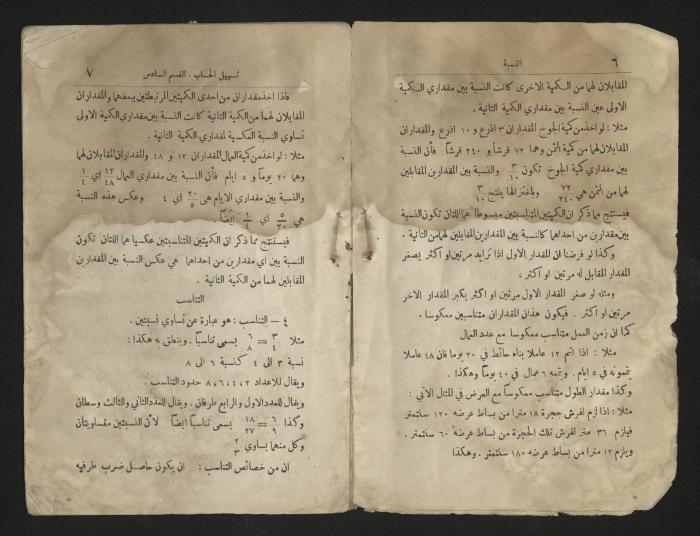 ٦
النسبة
المقابلان لهما من الكمية الاخرى كانت النسبة بين مقداري الكمية
الاولى عين النسبة بين مقداري الكمية الثانية .
مثلا : لو اخذ من كمية الجوخ المقداران ٣ اذرع و ١٠ اذرع والمقداران
المقابلان لهما من كمية الثمن وهما ٧٢ قرشاً و ٢٤٠ قرشاً فأن النسبة
بين مقداري كمية الجوخ تكون ٣/١٠ والنسبة بين المقدارين المقابلين
لهما من الثمن هي ٧٢/٢٤٠ وباختزالها ينتج ٣/١٠
فيستنتج مما ذكر ان الكميتين المتناسبتين مبسوطاً هما اللتان تكون النسبة
بين مقدارين من احداهما كالنسبة بين المقدارين المقابلين لهما من الثانية .
وكذا لو فرضنا ان المقدار الاول اذا تزايد مرتين او اكثر يصغر
المقدار المقابل له مرتين او اكثر ،
ومثله لو صغر المقدار الاول مرتين او اكثر يكبر المقدار الاخر
مرتين او اكثر . فيكون هذان المقداران متناسبين معكوسا .
كما ان زمن العمل متناسب معكوسا مع عدد العمال
مثلا : اذا اتم ١٢ عاملا بناء حائط في ٢٠ يوما فان ٤٨ عاملا
يتمونه في ٥ ايام . ويتمه ٦ عمال في ٤٠ يوما وهكذا .
وكذا مقدار الطول متناسب معكوساً مع العرض في المثال الاتي :
مثلا : اذا لزم لفرش حجرة ١٨ مترا من بساط عرضه ١٢٠ سنتمتر
فيلزم ٣٦ متر لفرش تلك الحجرة من بساط عرضه ٦٠ سنتمتر .
ويلزم ١٢ مترا من بساط عرضه ١٨٠ سنتمتر . وهكذا
تسهيل الحساب . القسم السادس
٧
فاذا اخذ مقداران من احدى الكميتين المرتبطتين ببعضهما والمقداران
المقابلان لهما من الكمية الثانية كانت النسبة بين مقداري الكمية الاولى
تساوي النسبة العكسية لمقداري الكمية الثانية .
مثلا : لو اخذ من كمية العمال المقداران ١٢ و ٤٨ والمقداران المقابلان لهما
وهما ٢٠ يوماً و ٥ ايام فأن النسبة بين مقداري العمال ١٢/٤٨ اي ١/٤
والنسبة بين مقداري الايام هي ٢٠/٥ اي ٤ وعكس هذه النسبة
هي ٥/٢٠ اي ١/٤ ايضاً .
فيستنتج مما ذكر ان الكميتين المتناسبتين عكسيا هما اللتان تكون
النسبة بين اي مقدارين من احداهما هي عكس النسبة بين المقدارين
المقابلين لهما من الكمية الثانية .
التناسب
٤ – التناسب : هو عبارة عن تساوي نسبتين .
مثلا ٣/٤ = ٦/٨ يسمى تناسباً . وينطق به هكذا :
نسبة ٣ الى ٤ كنسبة ٦ الى ٨
ويقال للاعداد ٣،٤،٦،٨ حدود التناسب .
ويقال للعدد الاول والرابع طرفان . ويقال للعدد الثاني والثالث وسطان
وكذا ٦/٩ = ١٨/٢٧ يسمى تناسباً ايضاً لأن النسبتين متساويتان
وكل منهما يساوي ٢/٣
ان من خصائص التناسب : ان يكون حاصل ضرب طرفيه